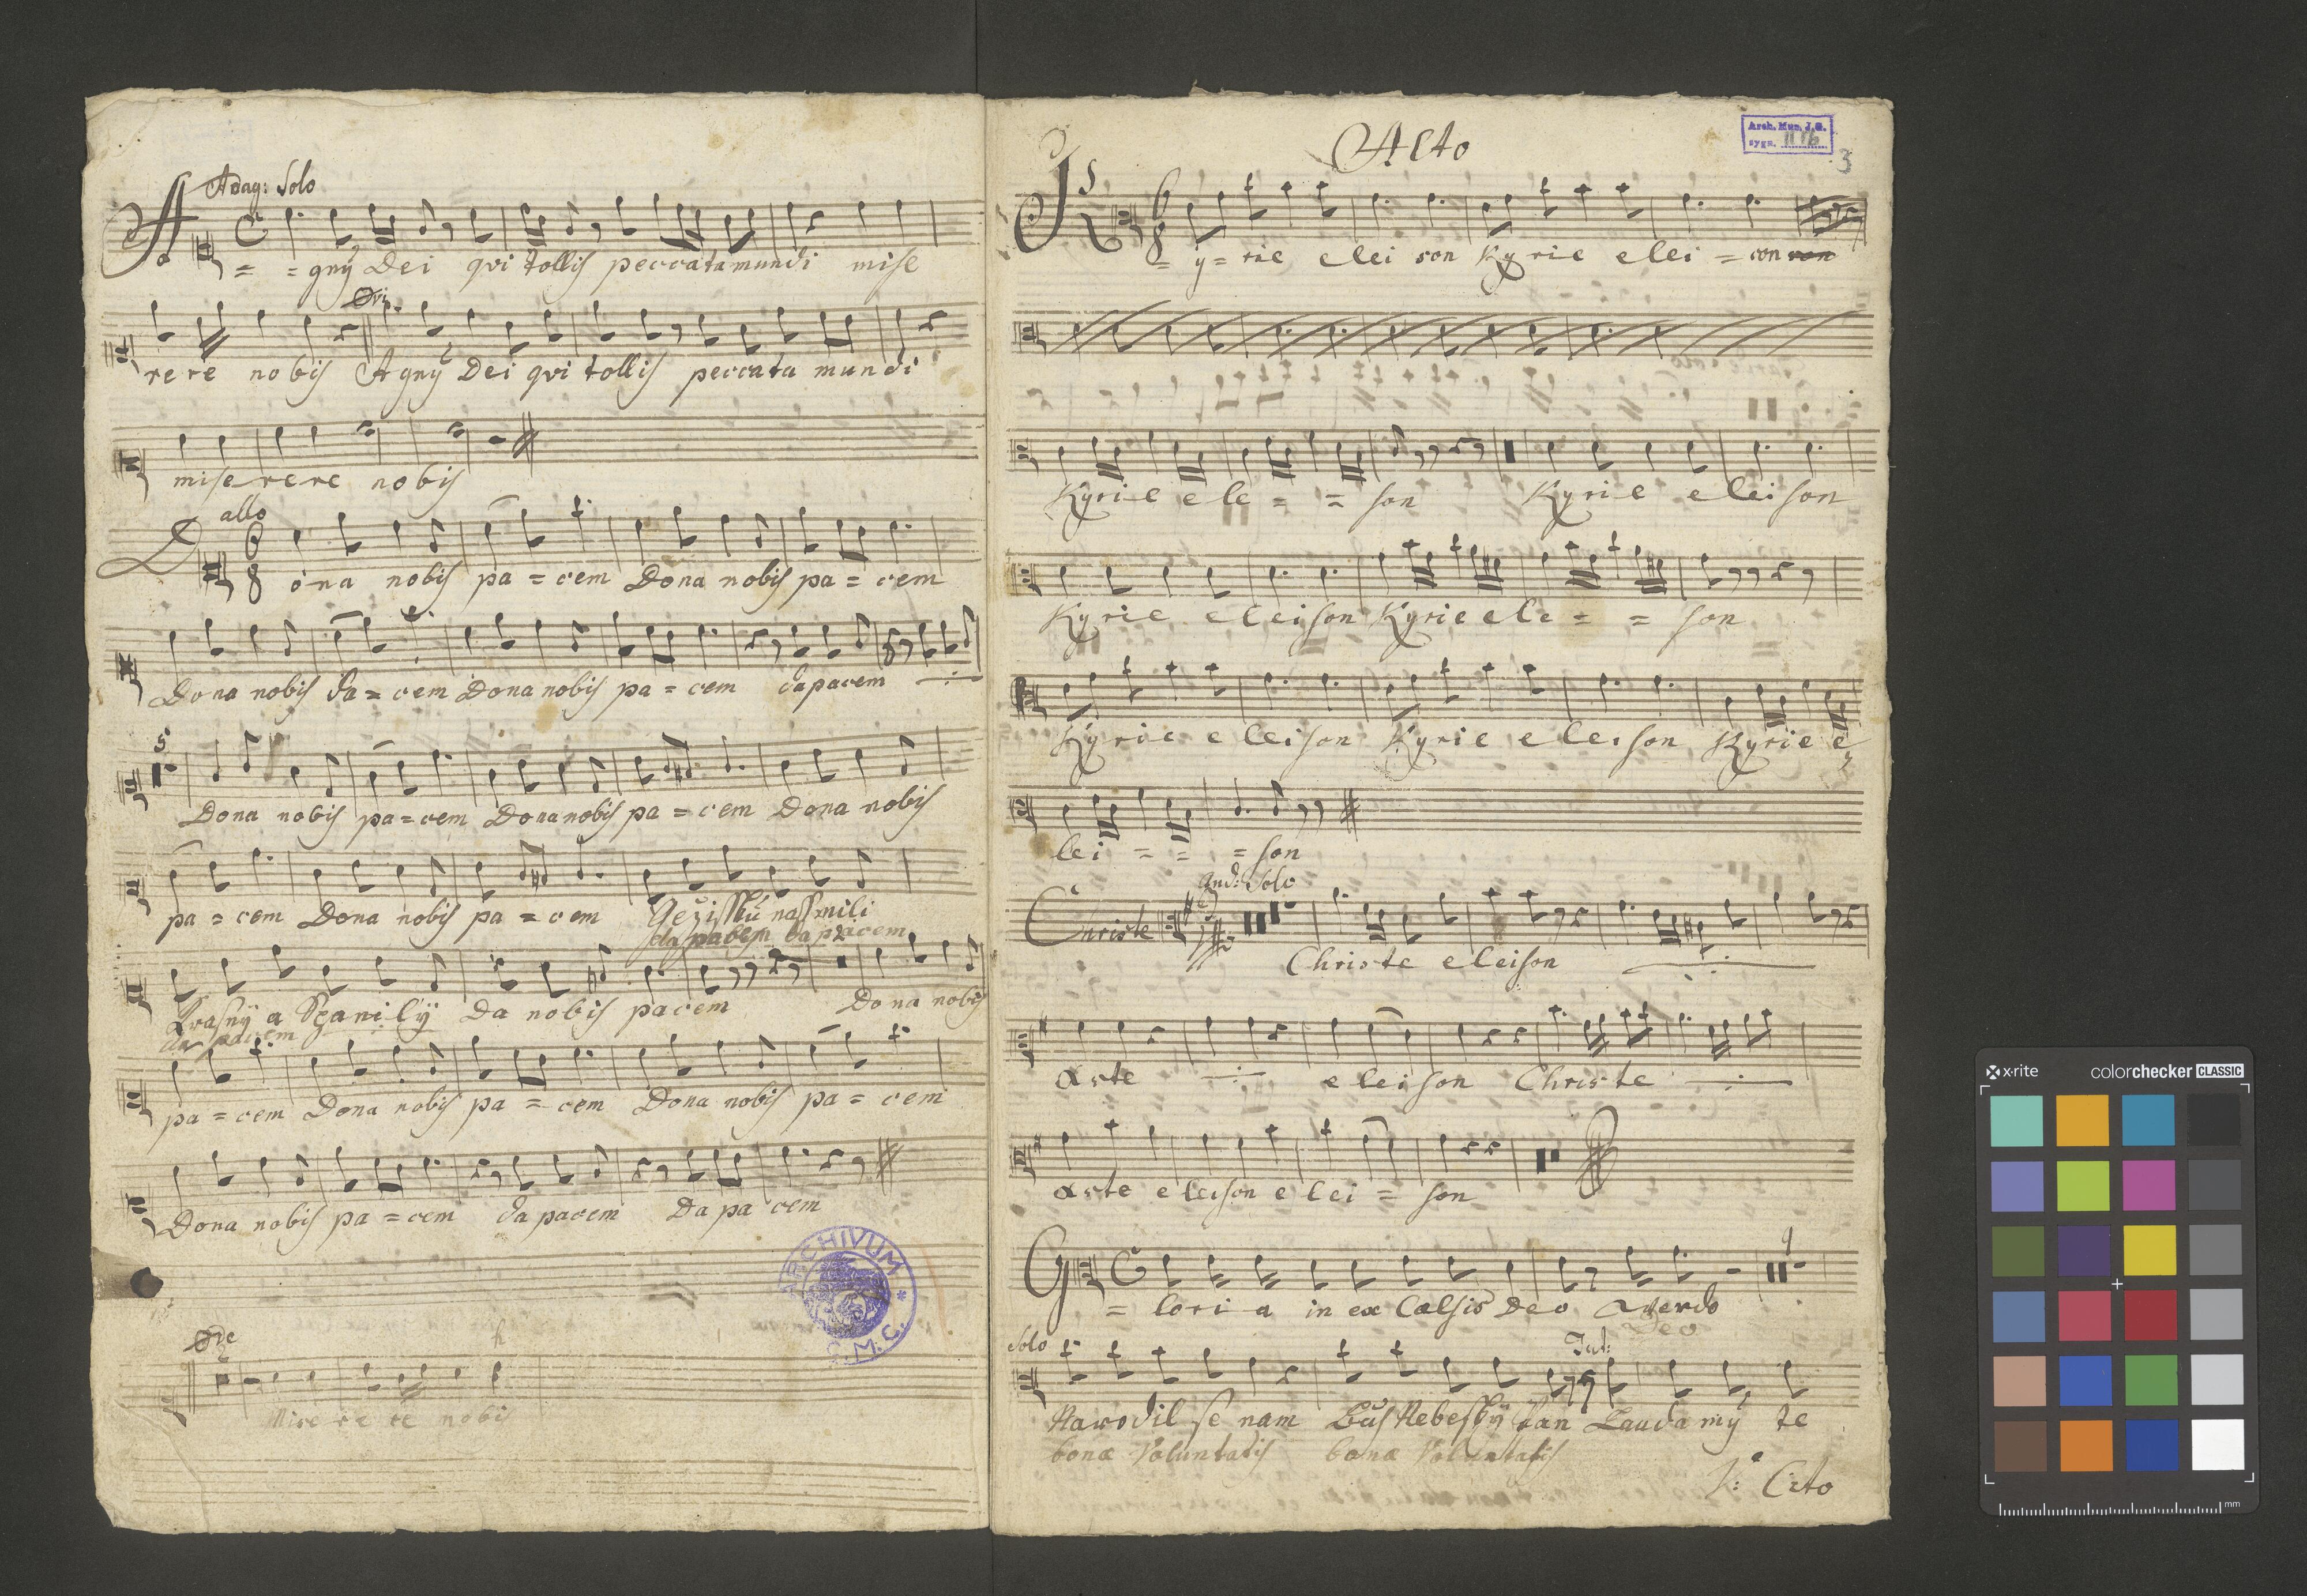 Adag: Solo
A = = gnÿ Dei qvi tollis peccata mundi mise
rere nobis Agnÿ Dei qvi tollis peccata mundi
miserere nobis
allo
D 6 8 ona nobis pa = cem Dona nobis pa = cem
Dona nobis Pa = cem Dona nobis pa = cem Dapacem
5
Dona nobis pa = cem Dona nobis pa = cem Dona nobis
pa = cem Dona nobis pa = cem
da pacem da pacem
Da nobis pacem Dona nobis
da pacem
pa = cem Dona nobis pa = cem Dona nobis pa = cem
Dona nobis pa = cem Da pacem Da pa cem
ARCHIVUM * S.M.C.
Mise re re nobis
Alto
Arch. Muz. J.G.
sygn.
3
K 6 8 = y = rie elei son Kyrie elei = son
Kyrie e le = = son Kyrie eleison
Kyrie eleison Kyrie ele = = son
Kyrie eleison Kyrie eleison Kyrie e
lei = = = son
And: Solo
Christe Christe eleison
Xste eleison Christe
Xste eleison e lei = son
G = lori a in ex Cœlsis Deo
Deo
Solo Tut:
Narodil se nam Pan Laudamÿ te
bonæ Voluntatis bonæ Voluntatis
V: Cito
x·rite colorchecker CLASSIC
mm